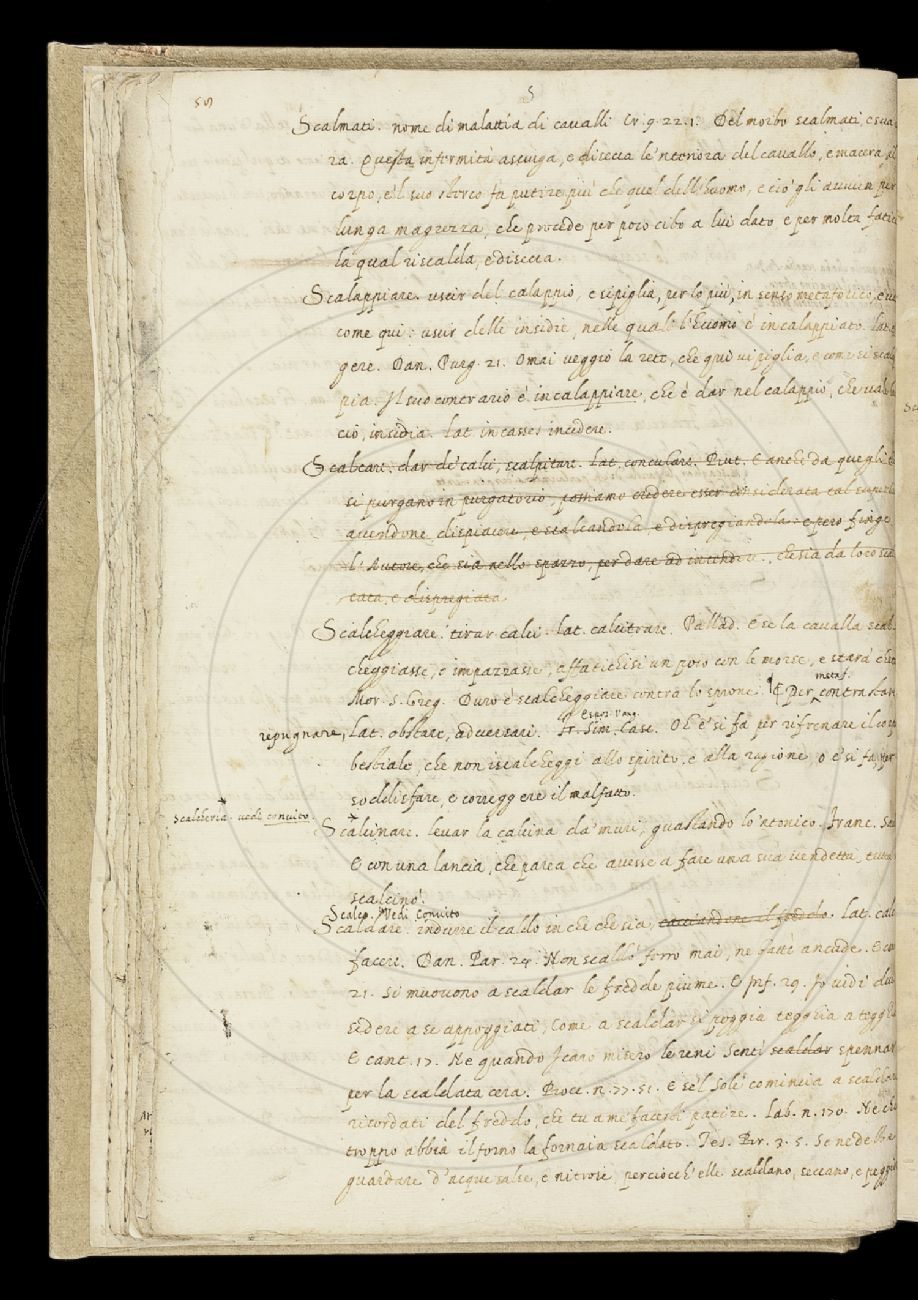 59
S
Scalmati. nome di malattia di cavalli Cr. 9. 22. 1. Del morbo scalmati, e sua
ra. Questa infermità asciuga, e disecca le 'nteriora del cavallo, e macera il
corpo, e 'l suo sterco fa putire più che quel dell'huomo, e ciò gli avvien per
lunga magrezza, che procede per poco cibo a lui dato, e per molta fatic
la qual riscalda, e disecca.
Scalappiare. uscir del calappio, e si piglia, per lo più, in senso metaforico,
come qui: uscir delle insidie, nelle quali l'huomo è incalappiato. Lat.
gere. Dan. Purg. 21. Omai veggio la rete, che qui vi piglia, e come si scala
pia. Il suo contrario è incalappiare, che è dar nel calappio, che val la
ciò, insidia. Lat. in casses incidere.
Scalcare. dar de' calci, scalpitare. Lat. conculcare. But. E anche da quegli
si purgano in purgatorio, possiamo credere esser considerata tal superbi
avendone dispiacere, e scalcandola, e dispregiandola: e però finge
l'Autore, che sia nello spazzo, per dare ad intendere, che sia da loro scal
cata, e dispregiata
Scalcheggiare. tirar calci. Lat. calcitrare. Pallad. E se la cavalla scal
cheggiasse, e impazzasse, affatichisi un poco con le morse, e starà cheta
Mor. S. Greg. Duro è scalcheggiare contra lo sprone. ¶ Per metaf. contrastare
repugnare, Lat. obstare, adversari. Espos. Vang. Fr. Sim. Casc. O e' si fa per rifrenare il corpo
bestiale, che non iscalcheggi allo spirito, e alla ragione, o e' si fa per
sodelisfare, e correggere il malfatto.
Scalcheria. vedi convito.
Scalcinare. levar la calcina da' muri, guastando lo 'ntonico. Franc. Sac
E con una lancia, che parea che avesse a fare una sua vendetta, tutta
scalcinò.
Scalco. Vedi Convito
Scaldare. indurre il caldo in che che sia, cacciandone il freddo. Lat. cale
facere. Dan. Par. 24. Non scaldò ferro mai, ne battè ancude. E
21. Si muovono a scaldar le fredde piume. E Inf. 29. Io vidi due
sedere a se appoggiati, Come a scaldar si poggia tegghia a tegghi
E cant. 17. Ne quando Icaro misero le reni Sentì scaldar spennar
per la scaldata cera. Bocc. n. 77. 51. E se 'l Sole comincia a scaldar
ricordati del freddo, che tu a me facesti patire. Lab. n. 170. Ne che
troppo abbia il forno la fornaia scaldato. Tes. Br. 3. 5. Se ne debbe
guardare d'acque salse, e nitrose, percioch'elle scaldano, seccano, e peggi